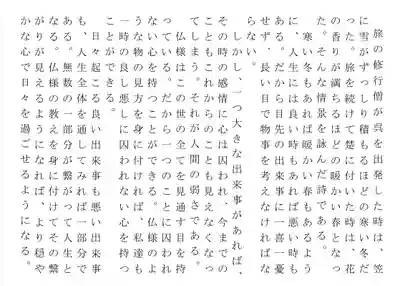 旅の修行僧が呉を出発した時は、笠
に雪がずっしり積もるほどの寒い冬だ
った。旅を続けて楚に付いた時は、花
の香りが満ちるほどの暖かい春となっ
た。そんな情景を詠んだ詩である。
寒い冬もあれば暖かい春もあるよう
に人生には良い時もあれば悪い時も
ある。だから目先の出来事に一喜一憂
せず、長い目で物事を考えなければな
らない。
しかし、一つ大きな出来事があれば、
その時の感情に心は囚われ、今までの
こともこれからのことも見えなくなっ
てしまう。それが人間の弱さである。
仏様はこの世の全てを見通す目を持
っている。だから一つのことに囚われ
ない心を持つことができる。仏様のよ
うな物の見方を身に付ければ、私達も
一時の良し悪しに囚われない心を持つ
ことができる。
日々起こる良い出来事も悪い出来事
も、人生全体を通してみれば一部分で
ある。無数の一部分が繋がって人生と
なる。仏様の教えを身に付けてその繋
がりが見えるようになれば、より穏や
かな心で日々を過ごせるようになる。